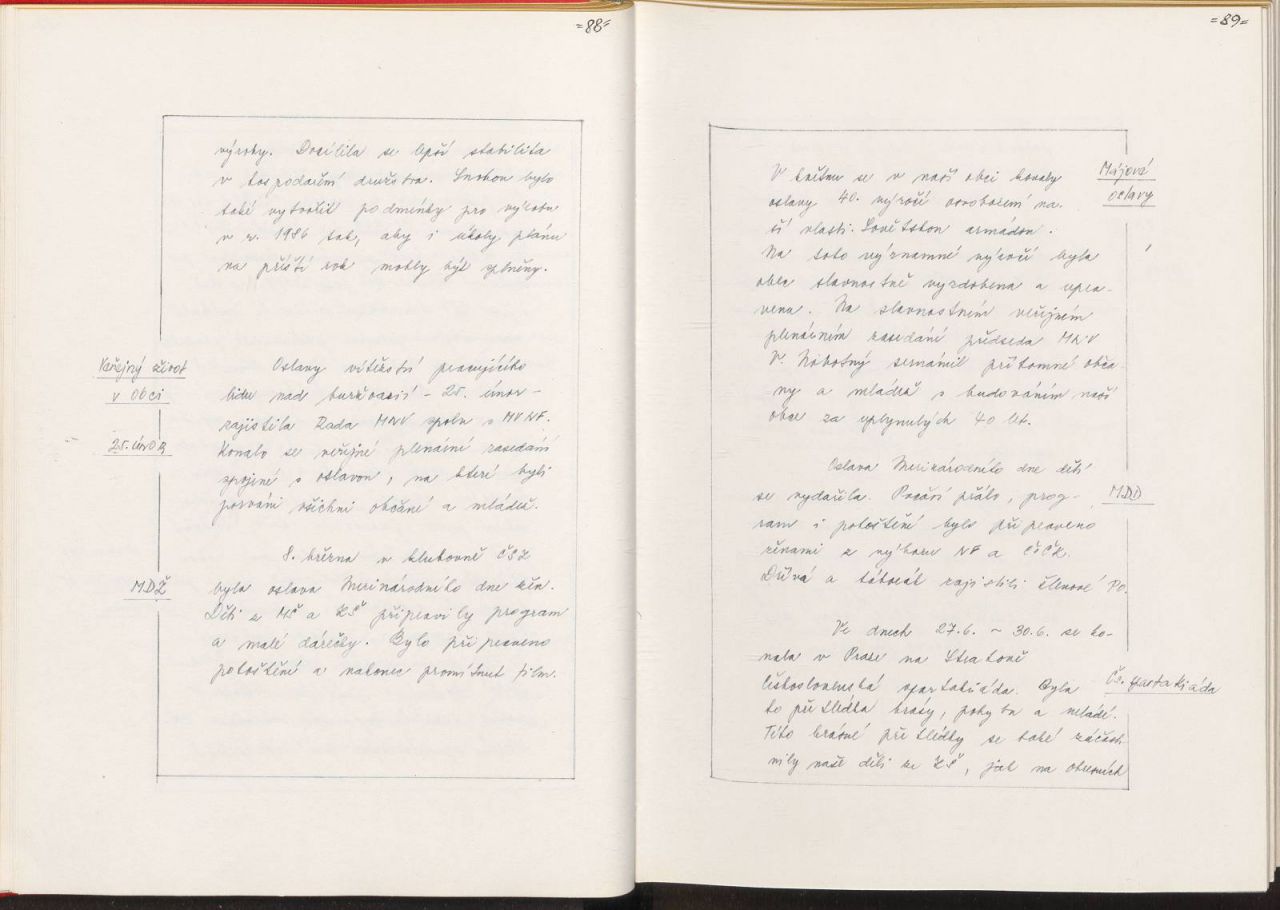 =88=
výroby. Docílila se lepší stabilita
v hospodaření družstva. Snahou bylo
také vytvořit podmínky pro výrobu
v r. 1986 tak, aby i úkoly plánu
na příští rok mohly být splněny.
Veřejný život
v obci
Oslavy vítězství pracujícího
lidu nad buržoasií - 25. únor -
25. únor
zajistila Rada MNV spolu s MV NF.
Konalo se veřejné plenární zasedání
spojené s oslavou, na které byli
pozváni všichni občané a mládež.
8. března v klubovně ČSŽ
MDŽ
byla oslava Mezinárodního dne žen.
Děti z MŠ a ZŠ připravily program
a malé dárečky. Bylo připraveno
pohoštění a nakonec promítnut film.
=89=
Májové
oslavy
V květnu se v naší obci konaly
oslavy 40. výročí osvobození na-
ší vlasti Sovětskou armádou.
Na toto významné výročí byla
obec slavnostně vyzdobena a upra-
vena. Na slavnostním veřejném
plenárním zasedání předseda MNV
V. Nábotný seznámil přítomné obča-
ny a mládež s budováním naší
obce za uplynulých 40 let.
Oslava Mezinárodního dne dětí
MDD
se vydařila. Počasí přálo, prog-
ram i pohoštění bylo připraveno
ženami z výboru NF a ČSČK.
Dříví a táborák zajistili členové PO.
Ve dnech 27.6. ~ 30.6. se ko-
nala v Praze na Strahově
Čs. spartakiáda
Československá spartakiáda. Byla
to přehlídka krásy, pohybu a mládí.
Této krásné přehlídky se také zúčast
nily naše děti ze ZŠ, jak na okresních